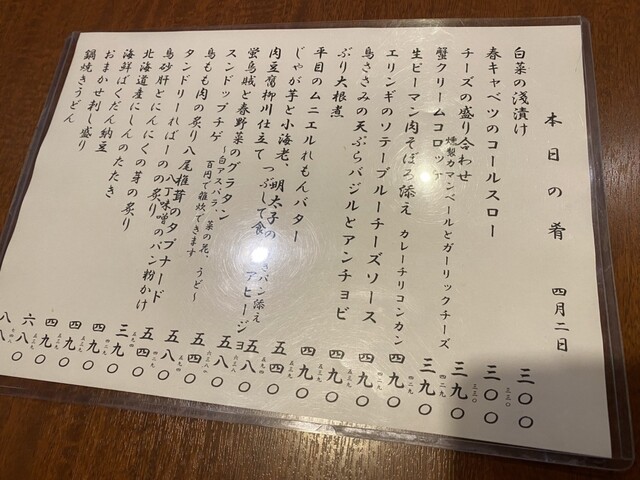 本日の肴　四月二日
白菜の浅漬け　三〇〇
三三〇
春キャベツのコールスロー　三〇〇
三三〇
チーズの盛り合わせ　三九〇
燻製カマンベールとガーリックチーズ
四二九
蟹クリームコロッケ　三九〇
四二九
生ピーマン肉そぼろ添え　カレーチリコンカン　四九〇
エリンギのソテーブルーチーズソース　四九〇
鳥ささみの天ぷらバジルとアンチョビ　四九〇
ぶり大根煮　四九〇
平目のムニエルれもんバター
じゃが芋と小海老、明太子の アヒージョ
つぶして食 きパン添え
肉豆腐柳川仕立て
蛍烏賊と春野菜のグラタン
〜白アスパラ、菜の花、うど〜
スンドゥブチゲ
百円で雑炊できます
鳥もも肉の炙り八尾椎茸のタプナード
タンドリーればーの八丁味噌のパン粉かけ
鳥砂肝とにんにくの芽の炙り
北海道産にしんのたたき
海鮮ばくだん納豆
おまかせ刺し盛り
鍋焼きうどん